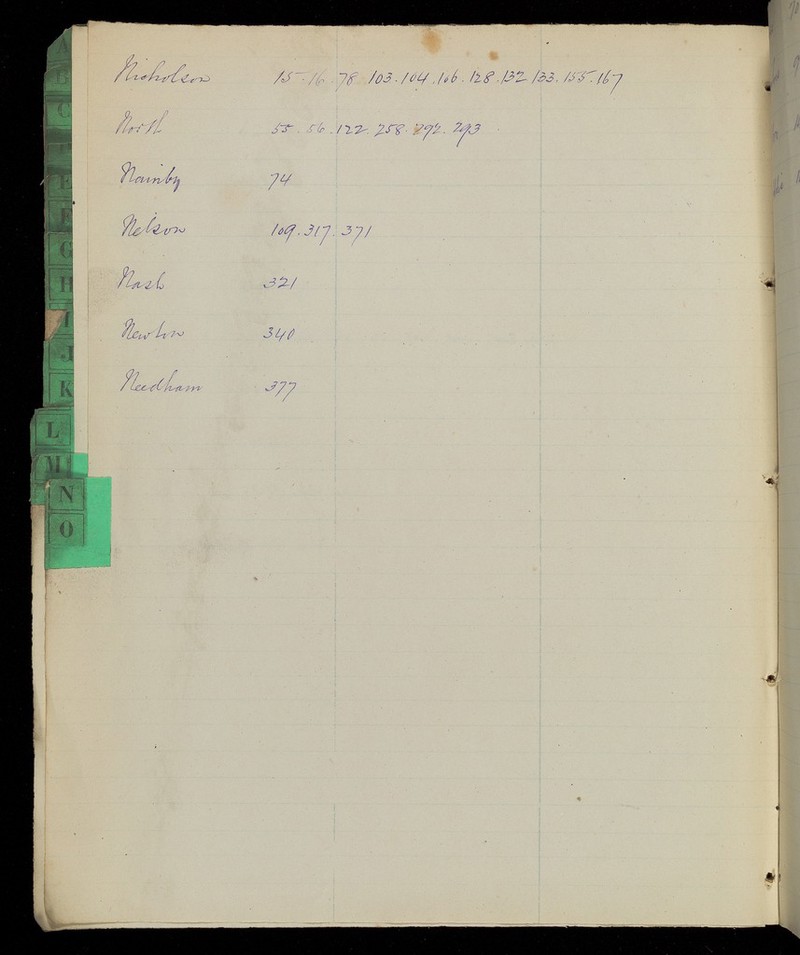 Nicholson 15. 16. 78. 103. 104. 106. 128. 132. 133. 155. 167
North 55. 56. 122. 258. 292. 293
Nainby 74
Nelson 109. 317. 371
Nash 321
Newton 340
Needham 377
A
B
C
E
F
G
H
I
J
K
L
M
N
O